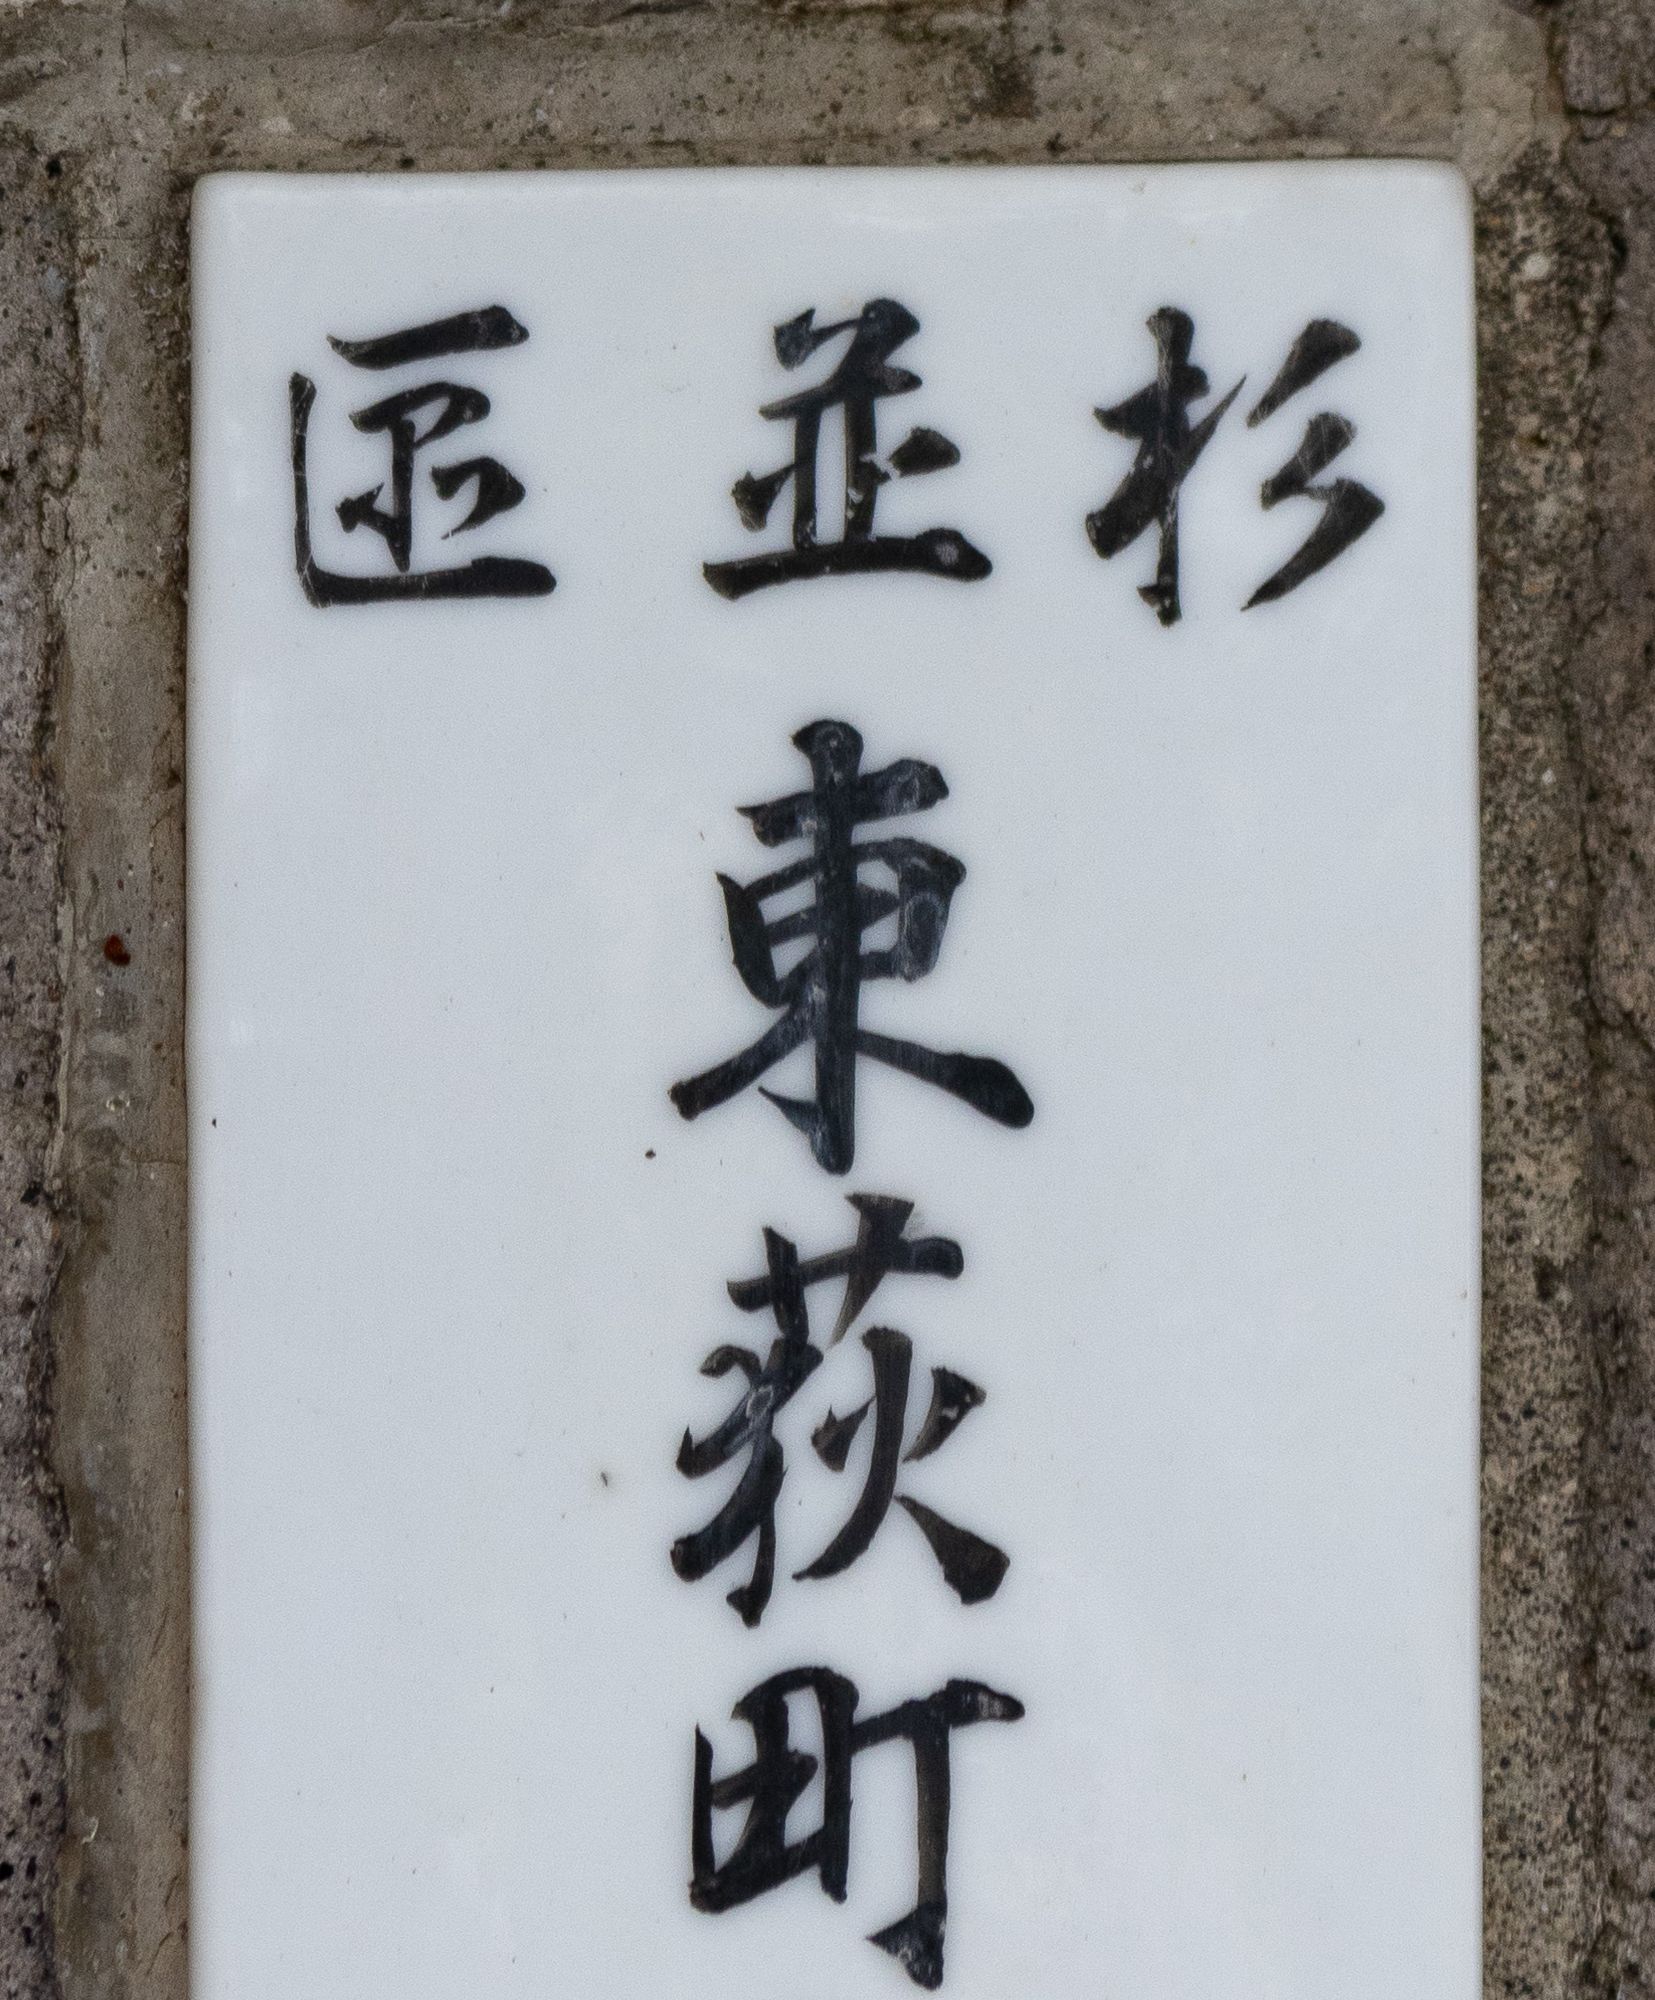 杉並區
東荻町